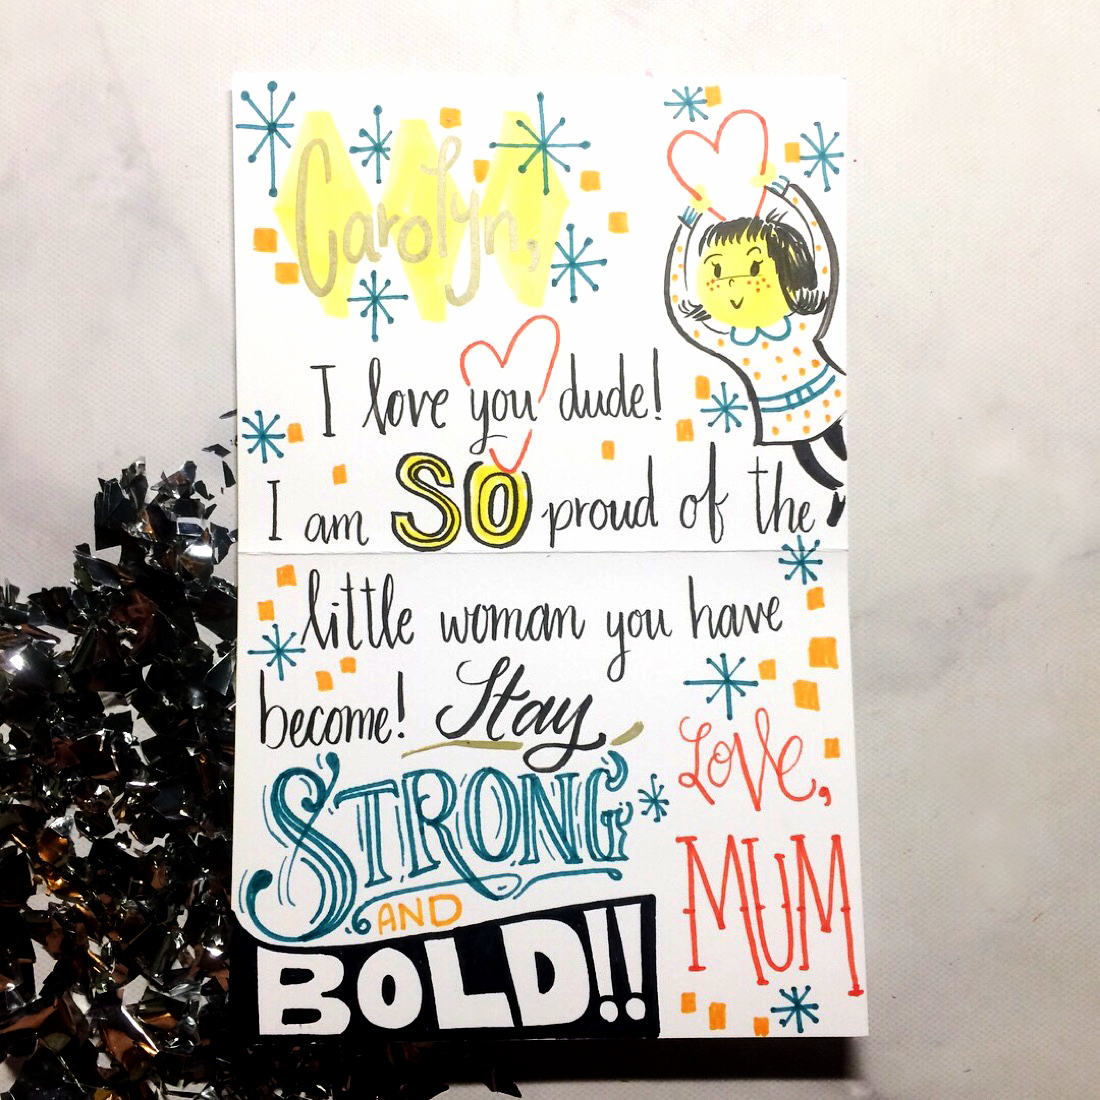 Carolyn,
I love you dude!
I am SO proud of the
little woman you have
become! Stay
STRONG
AND
BOLD!!
Love,
MUM